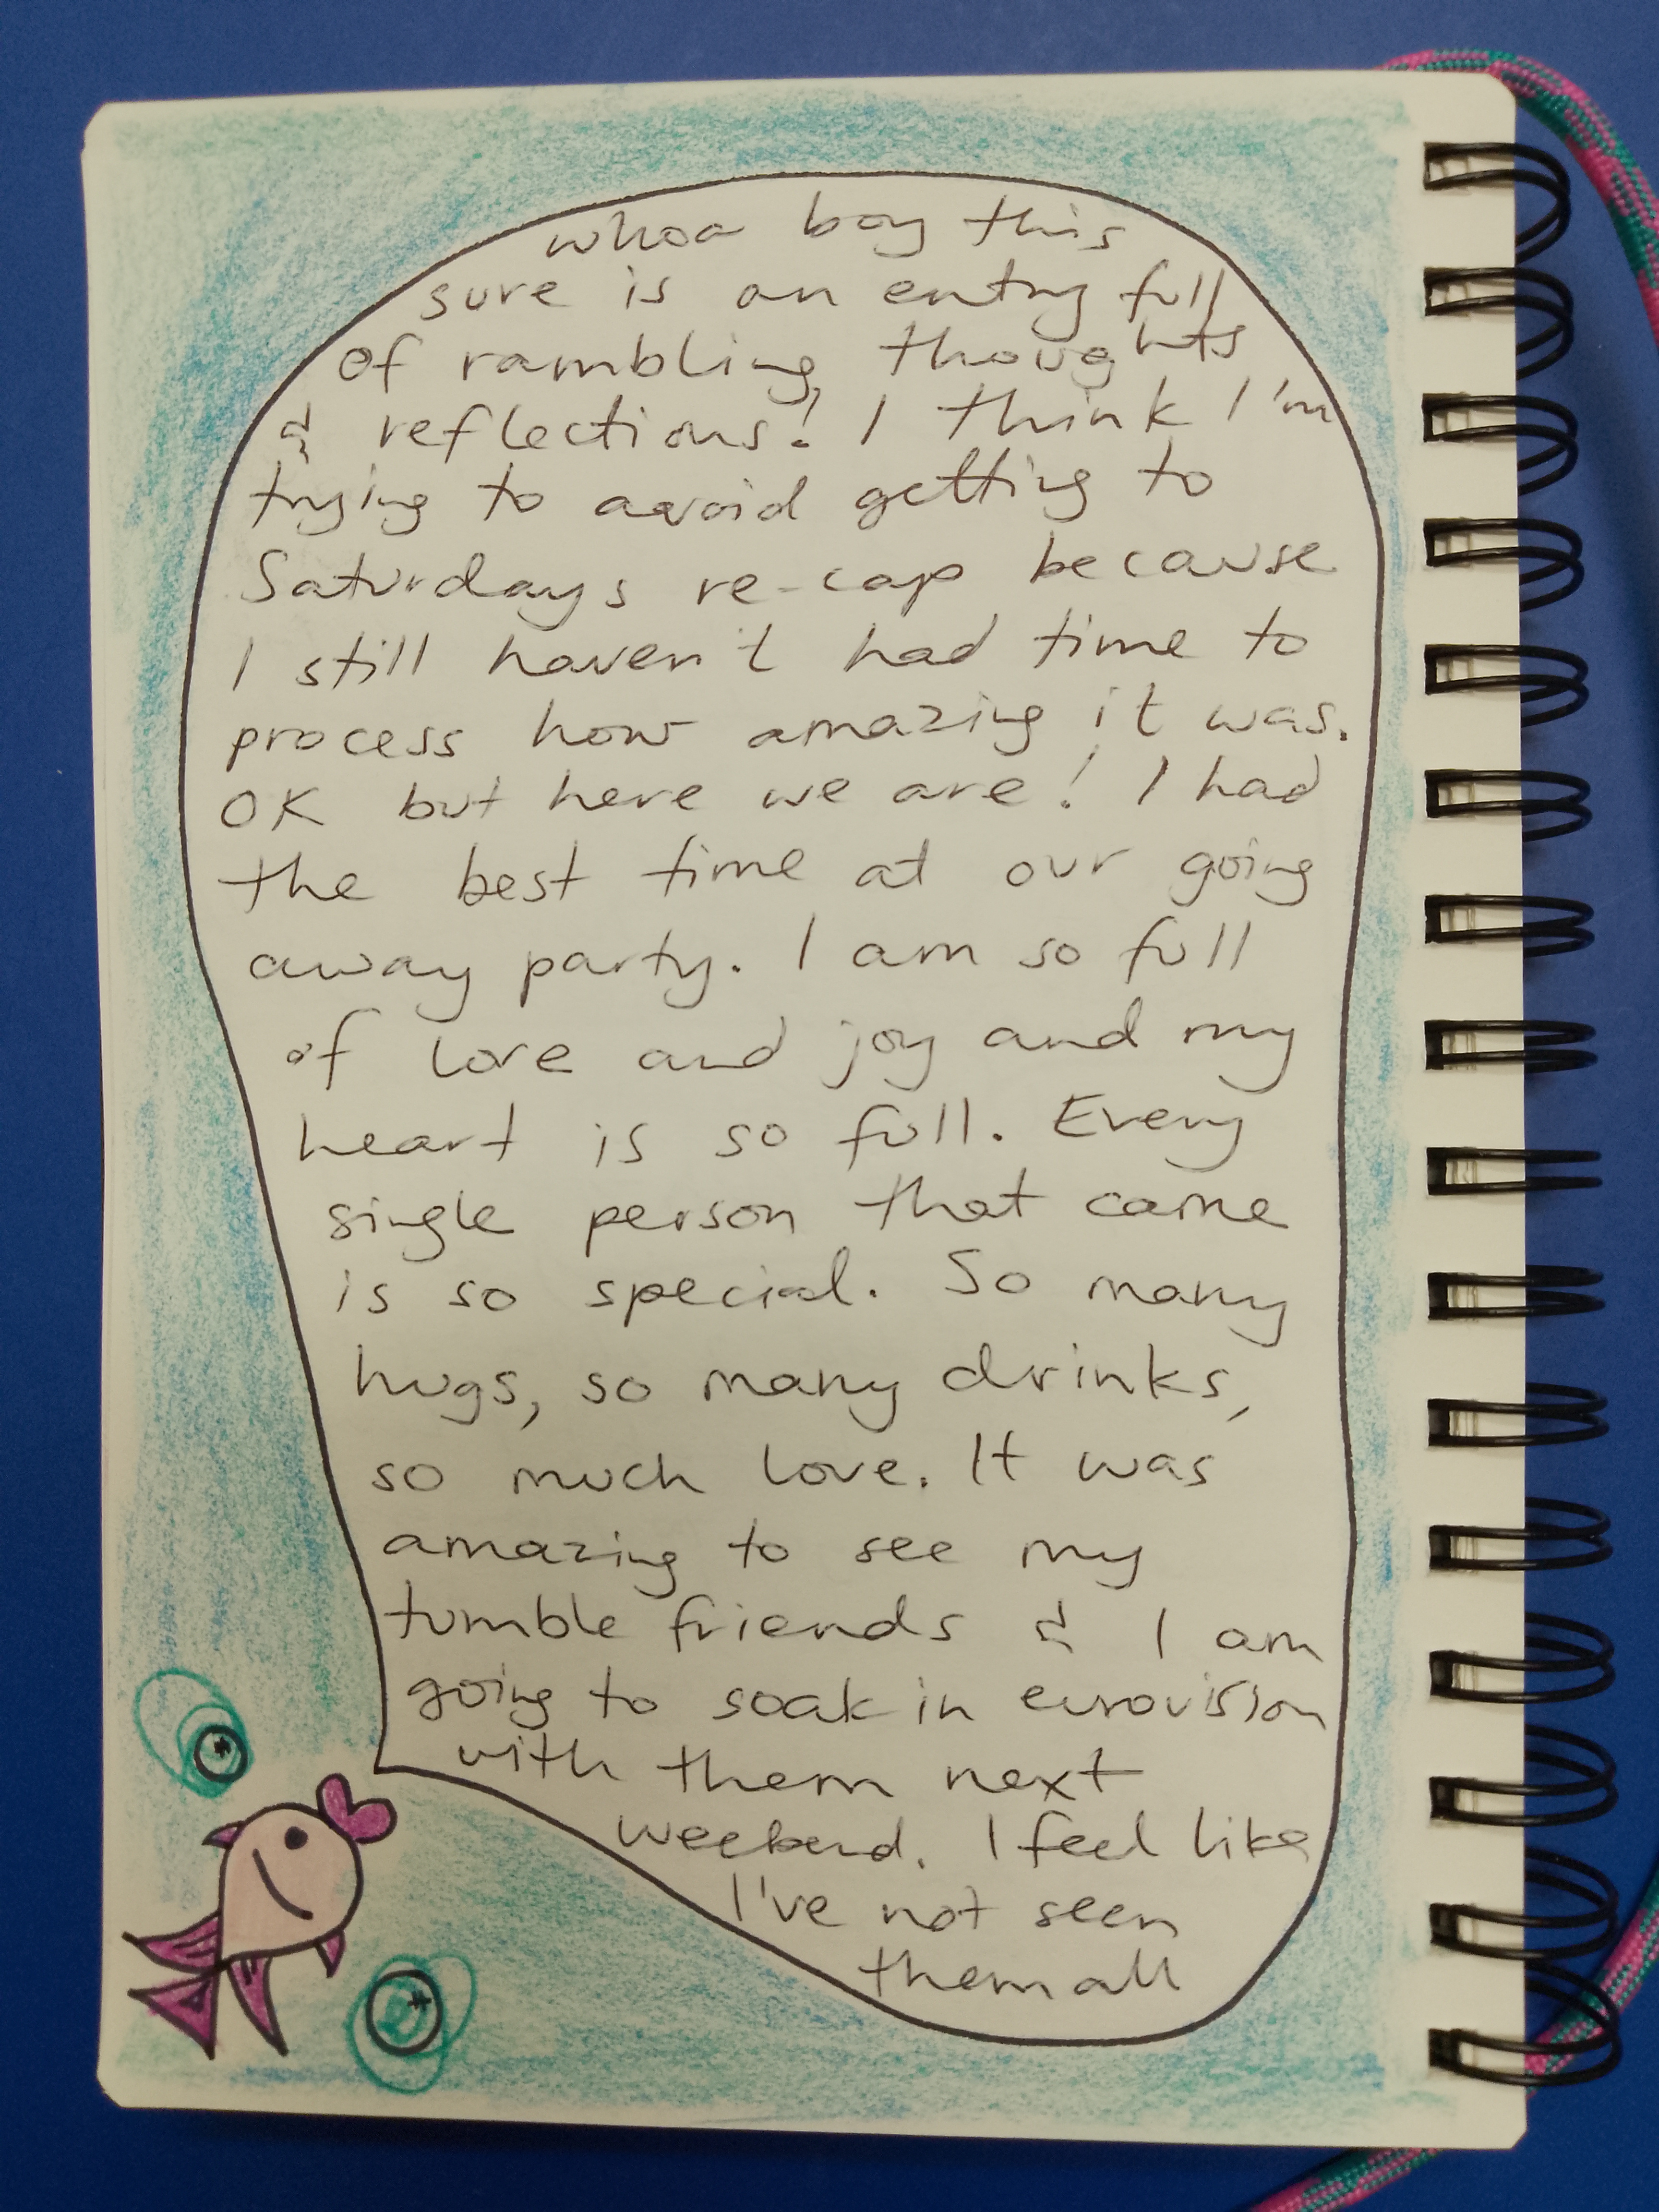 whoa boy this
sure is an entry full
of rambling thoughts
& reflections! I think I'm
trying to avoid getting to
Saturdays re-cap because
I still haven't had time to
process how amazing it was.
OK but here we are! I had
the best time at our going
away party. I am so full
of love and joy and my
heart is so full. Every
single person that came
is so special. So many
hugs, so many drinks,
so much love. It was
amazing to see my
tumble friends & I am
going to soak in eurovision
with them next
weekend. I feel like
I've not seen
them all